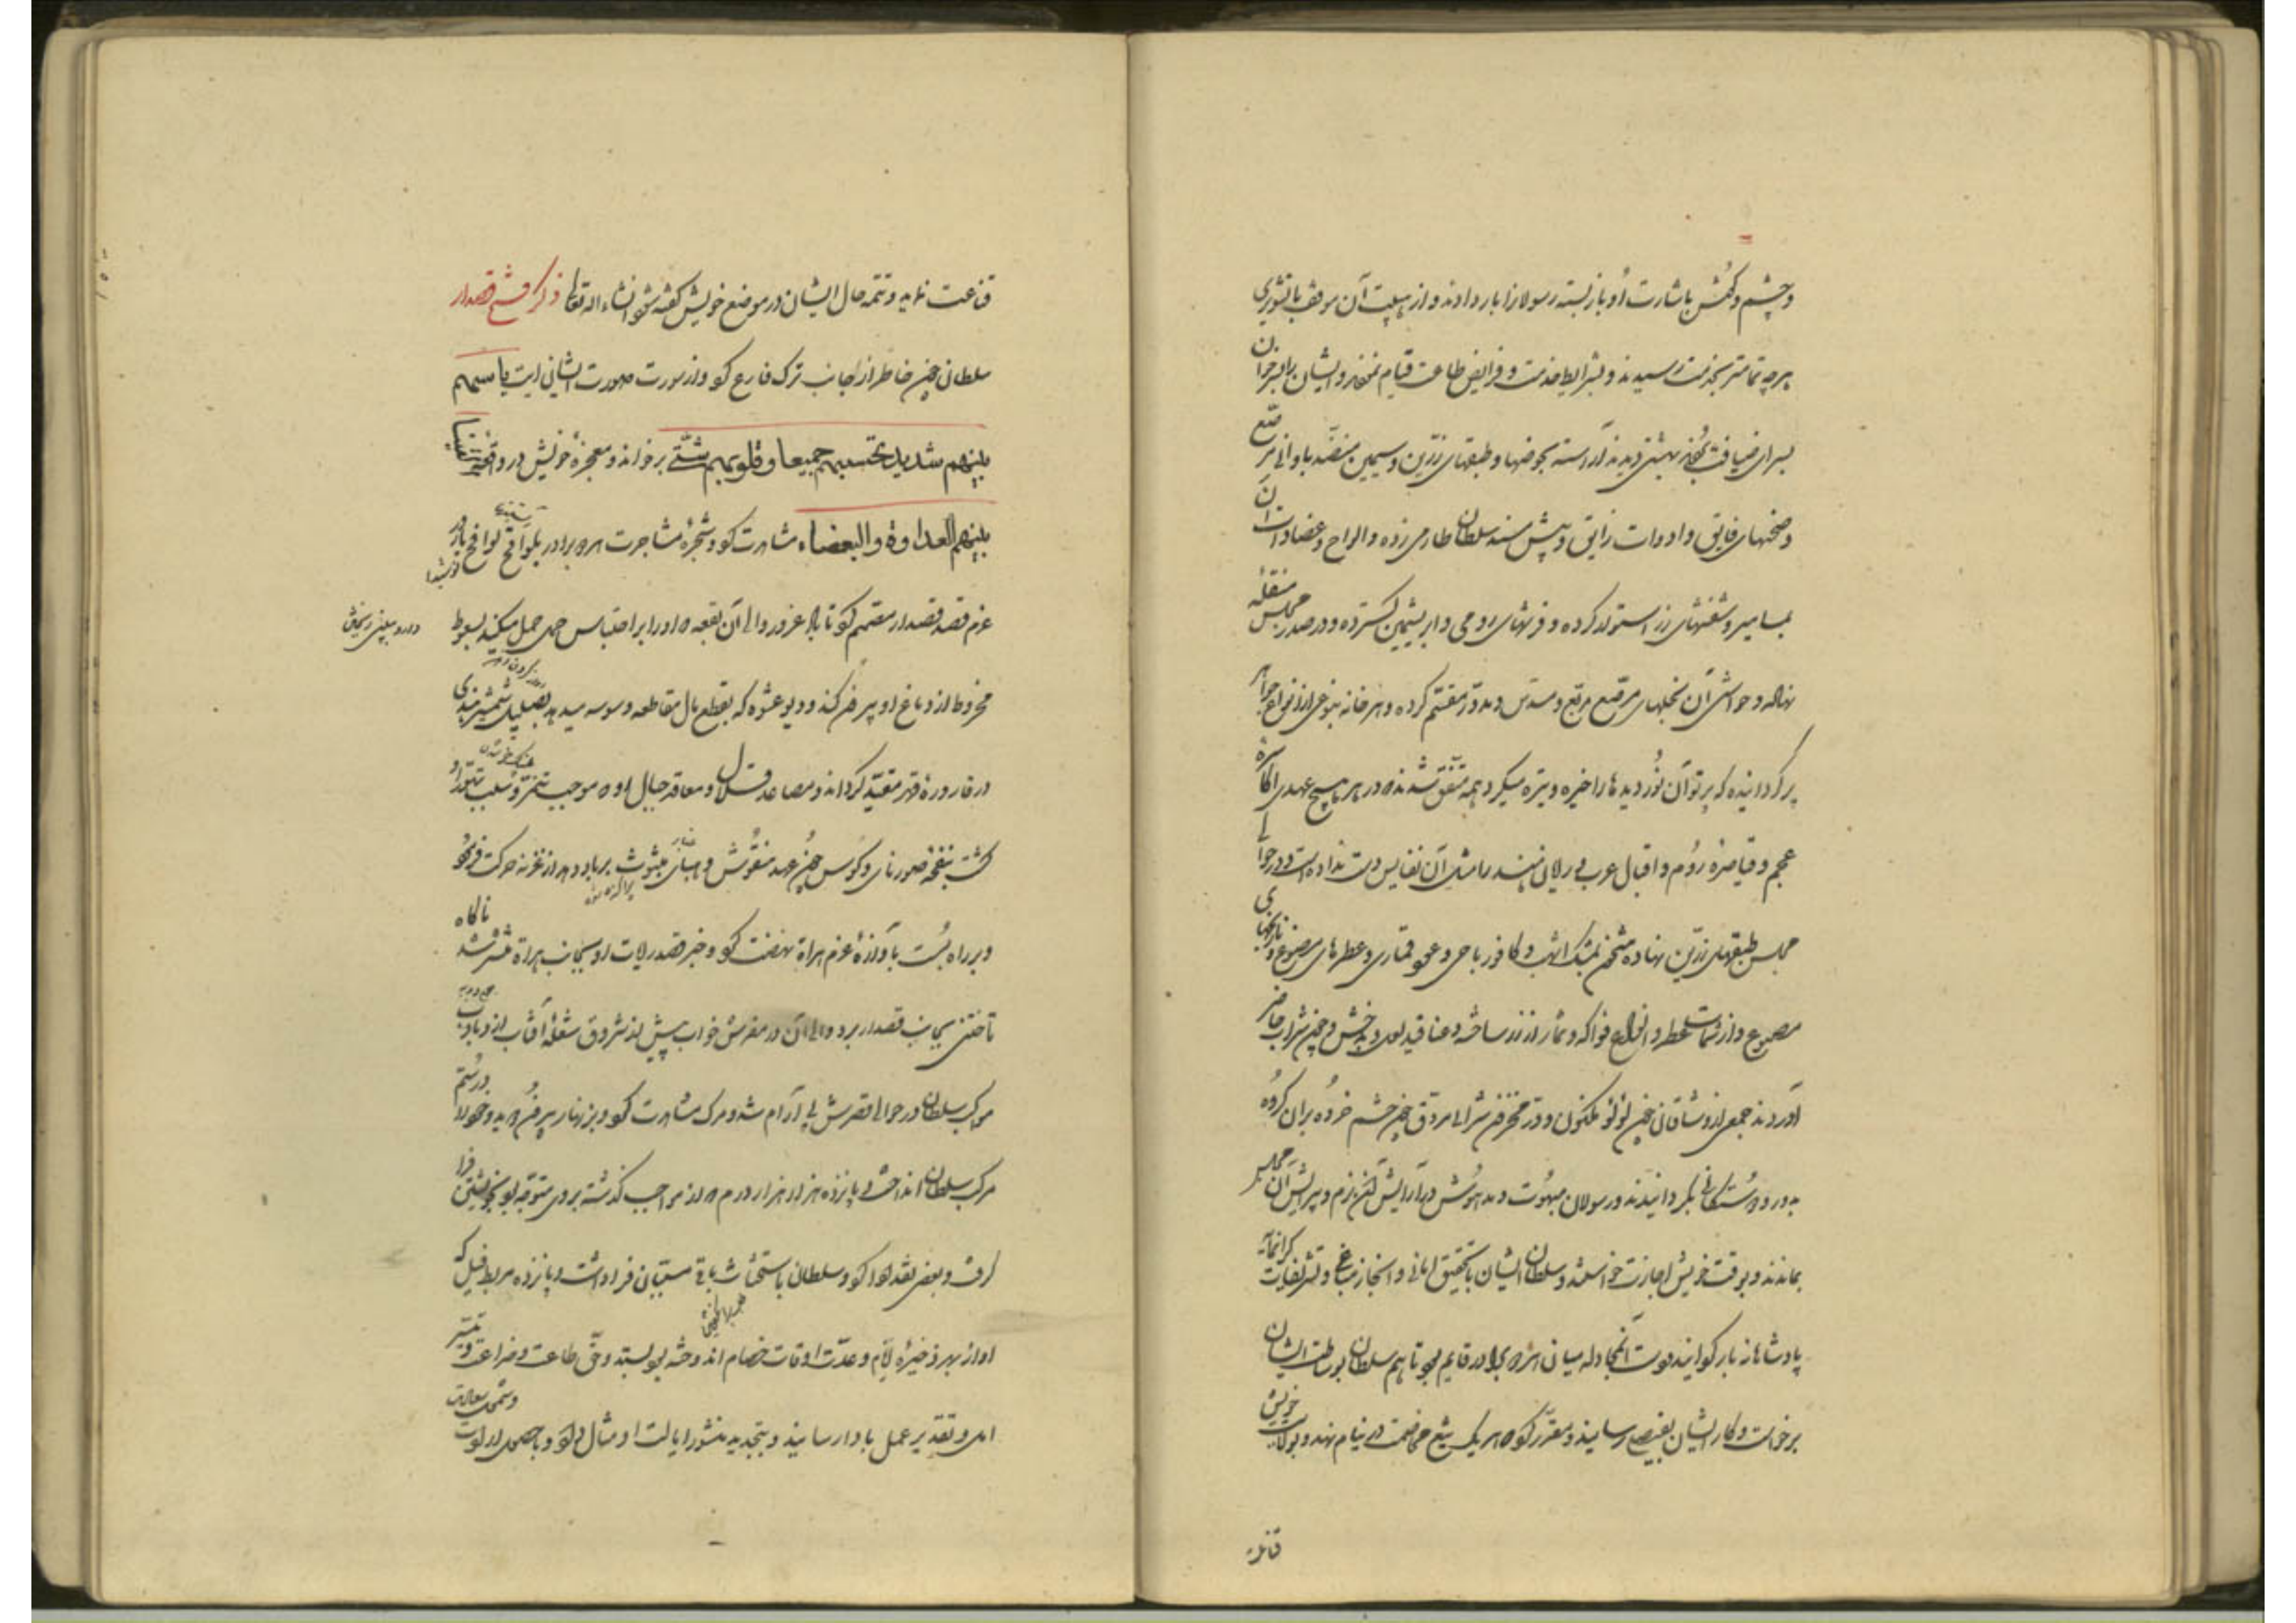 و چشم و گوش باشارت او باز بسته رسولانرا بار دادند و از هیبت آن موقف با تشویری
هرچه تمامتر بخدمت رسیدند و بشرایط خدمت و فرایض طاعت قیام نمودند و ایشان را بر خوان
بسرای ضیافت بردند بهشتی دیدند آراسته بحوضها و طبقهای زرین و سیمین منضد باوانی مرصع
و صحنهای فایق و ادوات رایق و پیش مسند سلطان طارمی زده و الواح و عضادات آن
بمسامیر و شفشهای زر استوار کرده و فرشهای رومی و ابریشمین گسترده و در صدر مجلس منقله
نهاده و حواشی آن بخلهای مرصع مربع و مسدس و مدور مقسم کرده و هر خانه بنوعی از انواع جواهر
پر گردانیده که پرتو آن نور دیدها را خیره و تیره میکرد و همه متفق شدند که در هیچ عهدی اکاسره
عجم و قیاصره روم و اقیال عرب و رایان هند را مثل آن نفایس دست نداده است و در حوالی
مجلس طبقهای زرین نهاده مشحون بمشک اشهب و کافور رباحی و عود قماری و عطرهای مصنوع و نارنجهای
مصبوع و از شمامات عطر و انواع فواکه و ثمار از زر ساخته و عناقید لعل بدخش و چون شراب حاضر
آوردند جمعی از وشاقان چون لؤلؤ مکنون و در مخزون شرابی مروق چون چشم خروس بران گروه
بدور دوستگانی بگردانیدند و رسولان مبهوت و مدهوش در آرایش آن بزم و پیرایش آن مجلس
بماندند و بوقت خویش اجازت خواستند و سلطان ایشان با تحقیق امانی و انجاز مباغی و تشریفات گرانمایه
پادشاهانه باز گردانید و مدت آن مجادله میان هر دو برادر قایم بود تا هم سلطان بوساطت ایشان
برخاست و کار ایشان بفیصل رسانید و مقرر کرد که هر یک تیغ مخاصمت در نیام نهند و بولایت خویش
قناعت نمایند و تتمه حال ایشان در موضع خویش گفته شود انشاء الله تعالی ذکر فتح قصدار
سلطان چون خاطر از جانب ترک فارغ کرد و از سورت صورت ایشان آیت باسهم
بینهم شدید تحسبهم جمیعا و قلوبهم شتی برخواند و معجزه خویش در والقینا
بینهم العداوة والبغضاء مشاهدت کرد و شجره مشاجرت هر دو برادر بلواقح
عزم قصد قصدار مصمم کرد تا باد غرور والی آن بقعه که او را بر احتباس حمل میکند بسعوط
مخروط از دماغ او بیرون کند و دیو عشوه که بقطع مال مقاطعه وسوسه میدهد بصلیل شمشیر هندی
در قارورۀ قهر مقید گرداند و مصاعد قلال و معاقد جبال او که موجب تنمر و سلب تهور او
گشت بنفخه صور نای و کوس چون عهن منفوش و هباء مبثوث برباد دهد از غزنه حرکت فرمود
و بر راه بست بآوازه عزم هراة نهضت کرد و خبر قصد رایات او بجانب هراة منتشر شد ناگاه
تاختنی بجانب قصدار برد و والی آن در مفرش خواب پیش از شروق شعلۀ آفتاب
موکب سلطان در حوالی قصرش بی آرام شد و مرگ مشاهدت کرد و بزنهار بیرون دوید و خود را در ستم
مرکب سلطان انداخت و پانزده هزار هزار درم که از مواجب گذشته بر وی متوجه بود بخویشتن فرا
گرفت و بعضی نقد ادا کرد و سلطان باستحثاث باقی مسببان فرا داشت و پانزده مربط فیل که
او از بهر ذخیرۀ ایام و عدت اوقات خصام اندوخته بود بستد و حق طاعت و ضراعت
او و تقدیر عمل با او رسانید و بتجدید منشور ایالت او مثال داد
قناعت